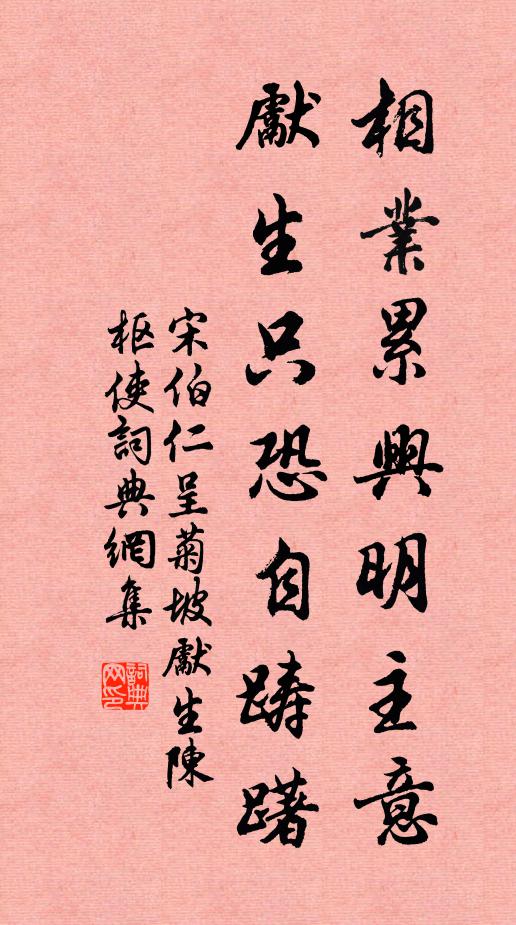 相業累興明主意
獻生只恐自躊躇
宋伯仁呈菊坡獻生陳
枢使詞典網集
詞典网印